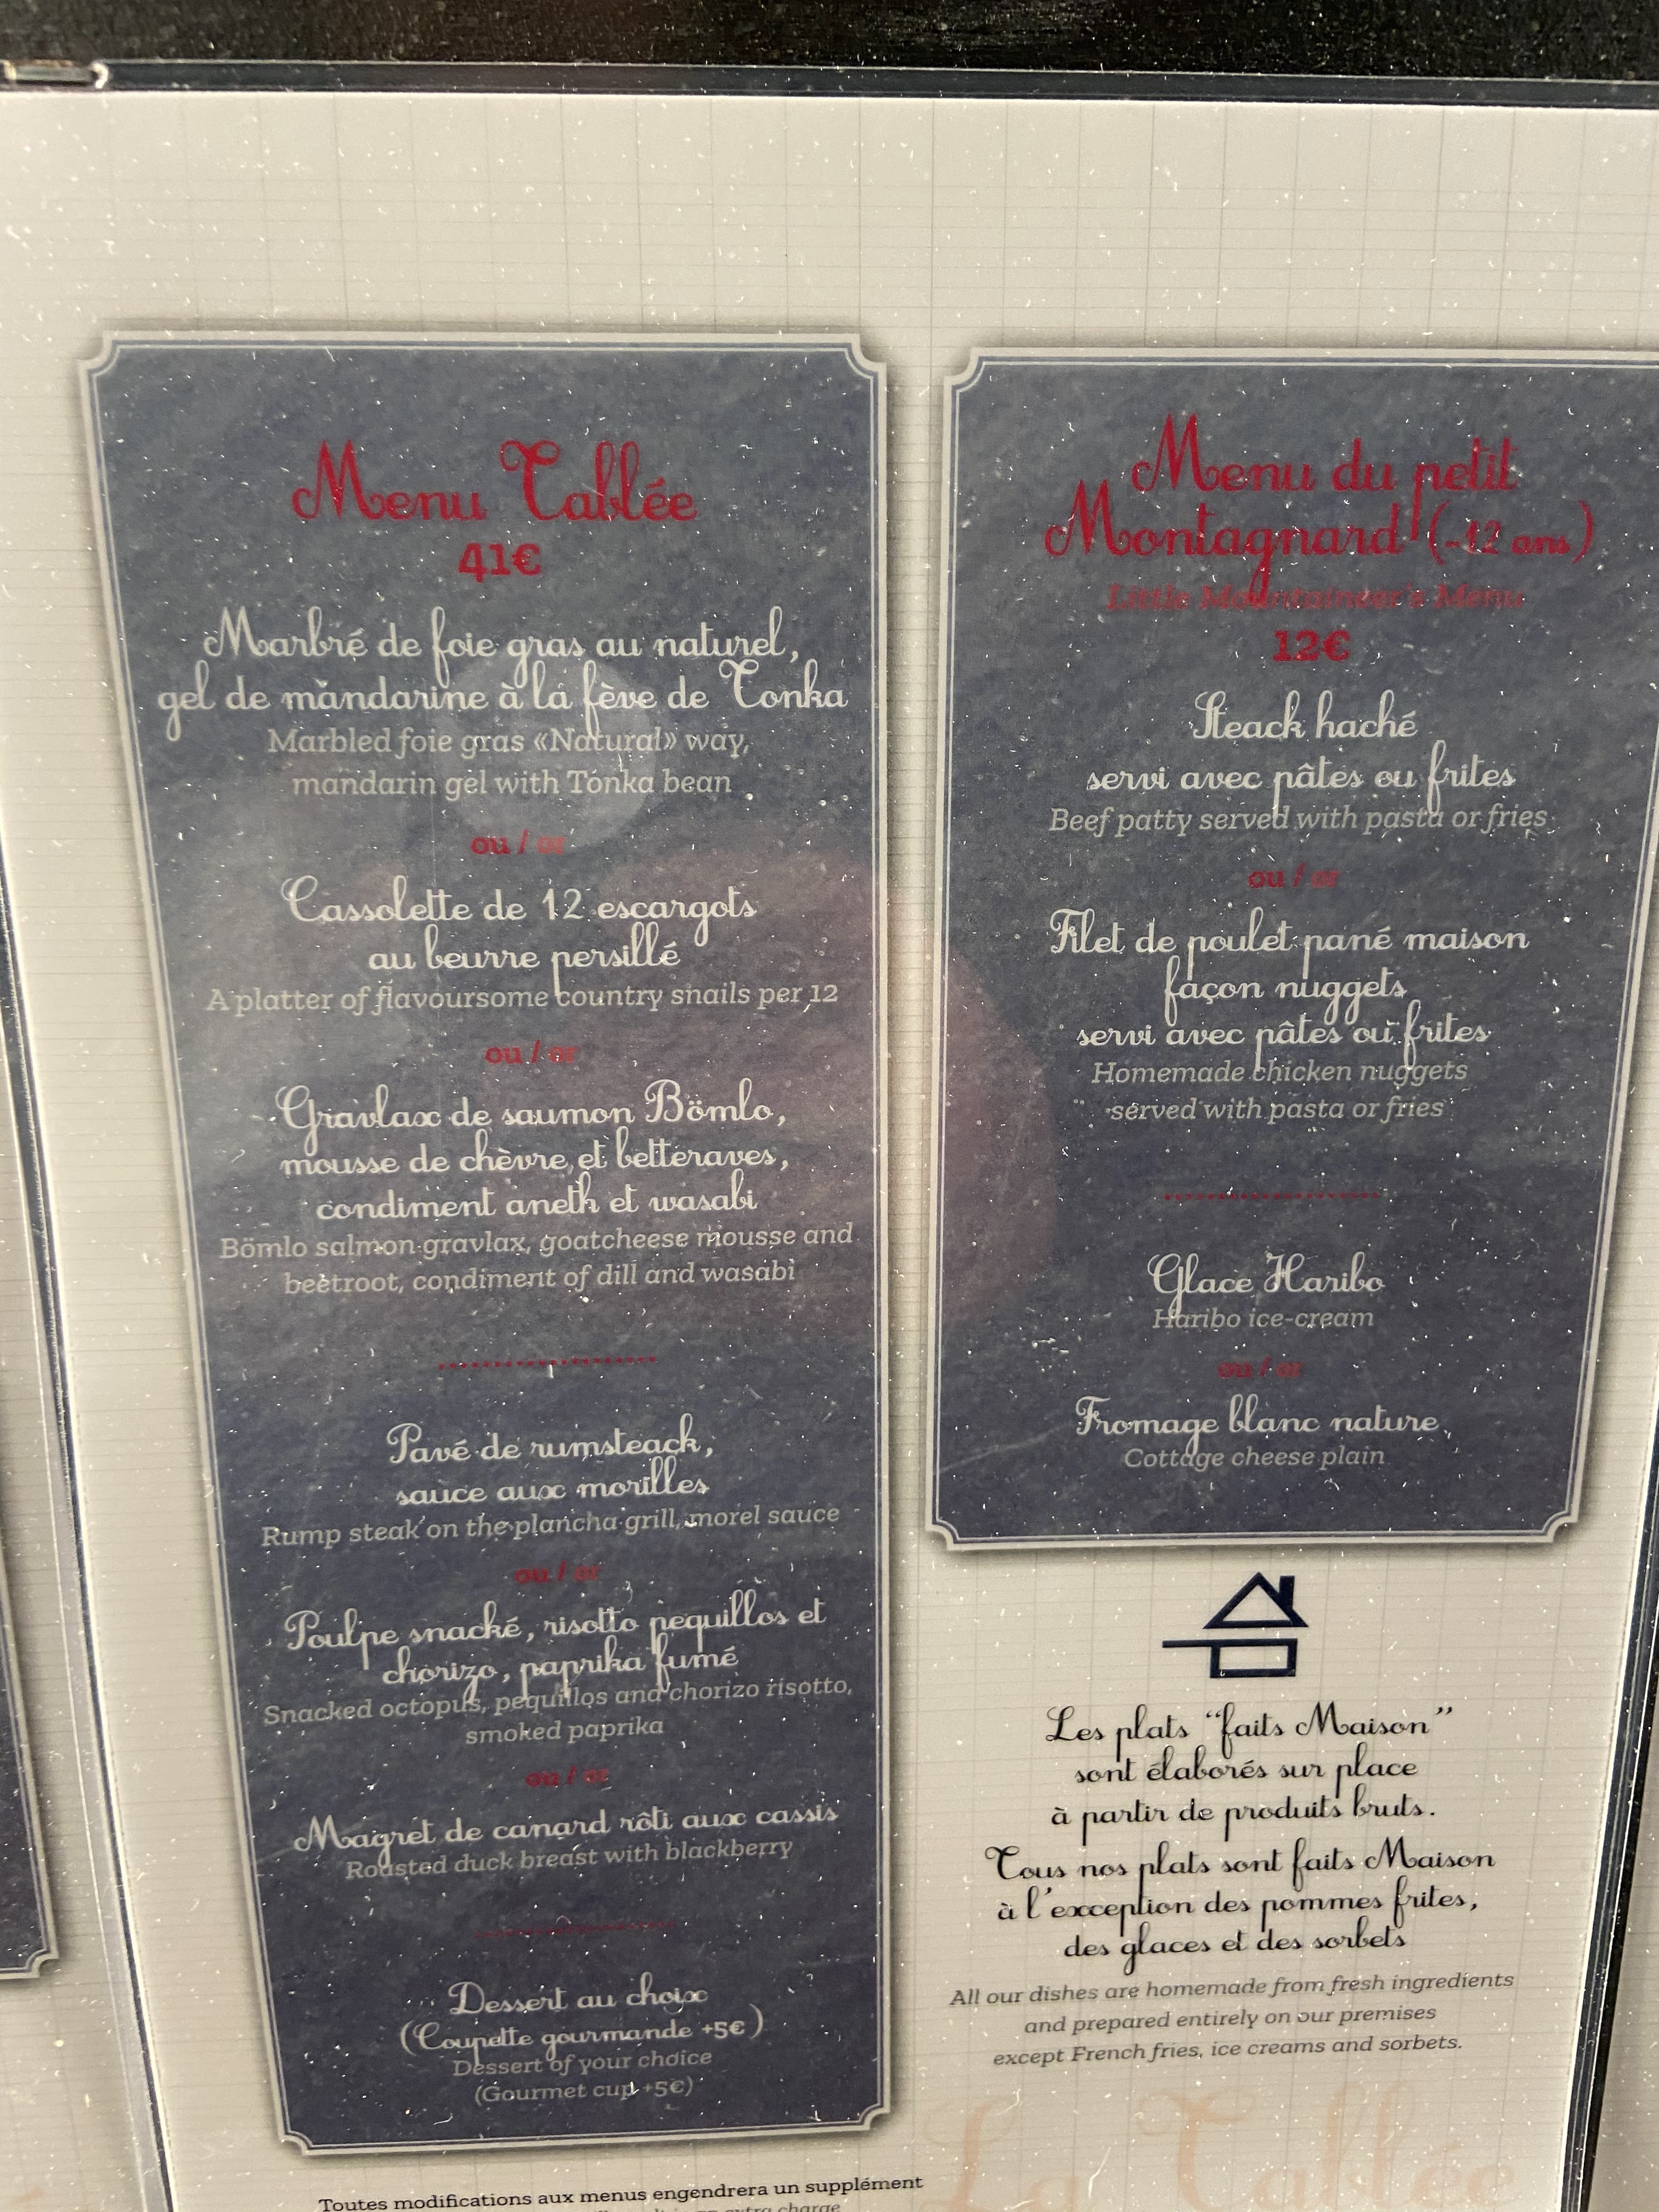 Menu Tablée
41€
Marbré de foie gras au naturel,
gel de mandarine à la fève de Tonka
Marbled foie gras «Natural» way,
mandarin gel with Tonka bean
ou / or
Cassolette de 12 escargots
au beurre persillé
A platter of flavoursome country snails per 12
ou / or
Gravlax de saumon Bömlo,
mousse de chèvre et betteraves,
condiment aneth et wasabi
Bömlo salmon gravlax, goatcheese mousse and
beetroot, condiment of dill and wasabi
Pavé de rumsteack,
sauce aux morilles
Rump steak on the plancha grill, morel sauce
ou / or
Poulpe snacké, risotto pequillos et
chorizo, paprika fumé
Snacked octopus, pequillos and chorizo risotto,
smoked paprika
ou / or
Magret de canard rôti aux cassis
Roasted duck breast with blackberry
Dessert au choix
(Coupette gourmande +5€)
Dessert of your choice
(Gourmet cup +5€)
Toutes modifications aux menus engendrera un supplément
extra charge
Menu du petit
Montagnard (-12 ans)
Little Mountaineer's Menu
12€
Steack haché
servi avec pâtes ou frites
Beef patty served with pasta or fries
ou / or
Filet de poulet pané maison
façon nuggets
servi avec pâtes ou frites
Homemade chicken nuggets
served with pasta or fries
Glace Haribo
Haribo ice-cream
ou / or
Fromage blanc nature
Cottage cheese plain
Les plats “faits Maison”
sont élaborés sur place
à partir de produits bruts.
Tous nos plats sont faits Maison
à l'exception des pommes frites,
des glaces et des sorbets
All our dishes are homemade from fresh ingredients
and prepared entirely on our premises
except French fries, ice creams and sorbets.
La Tablée